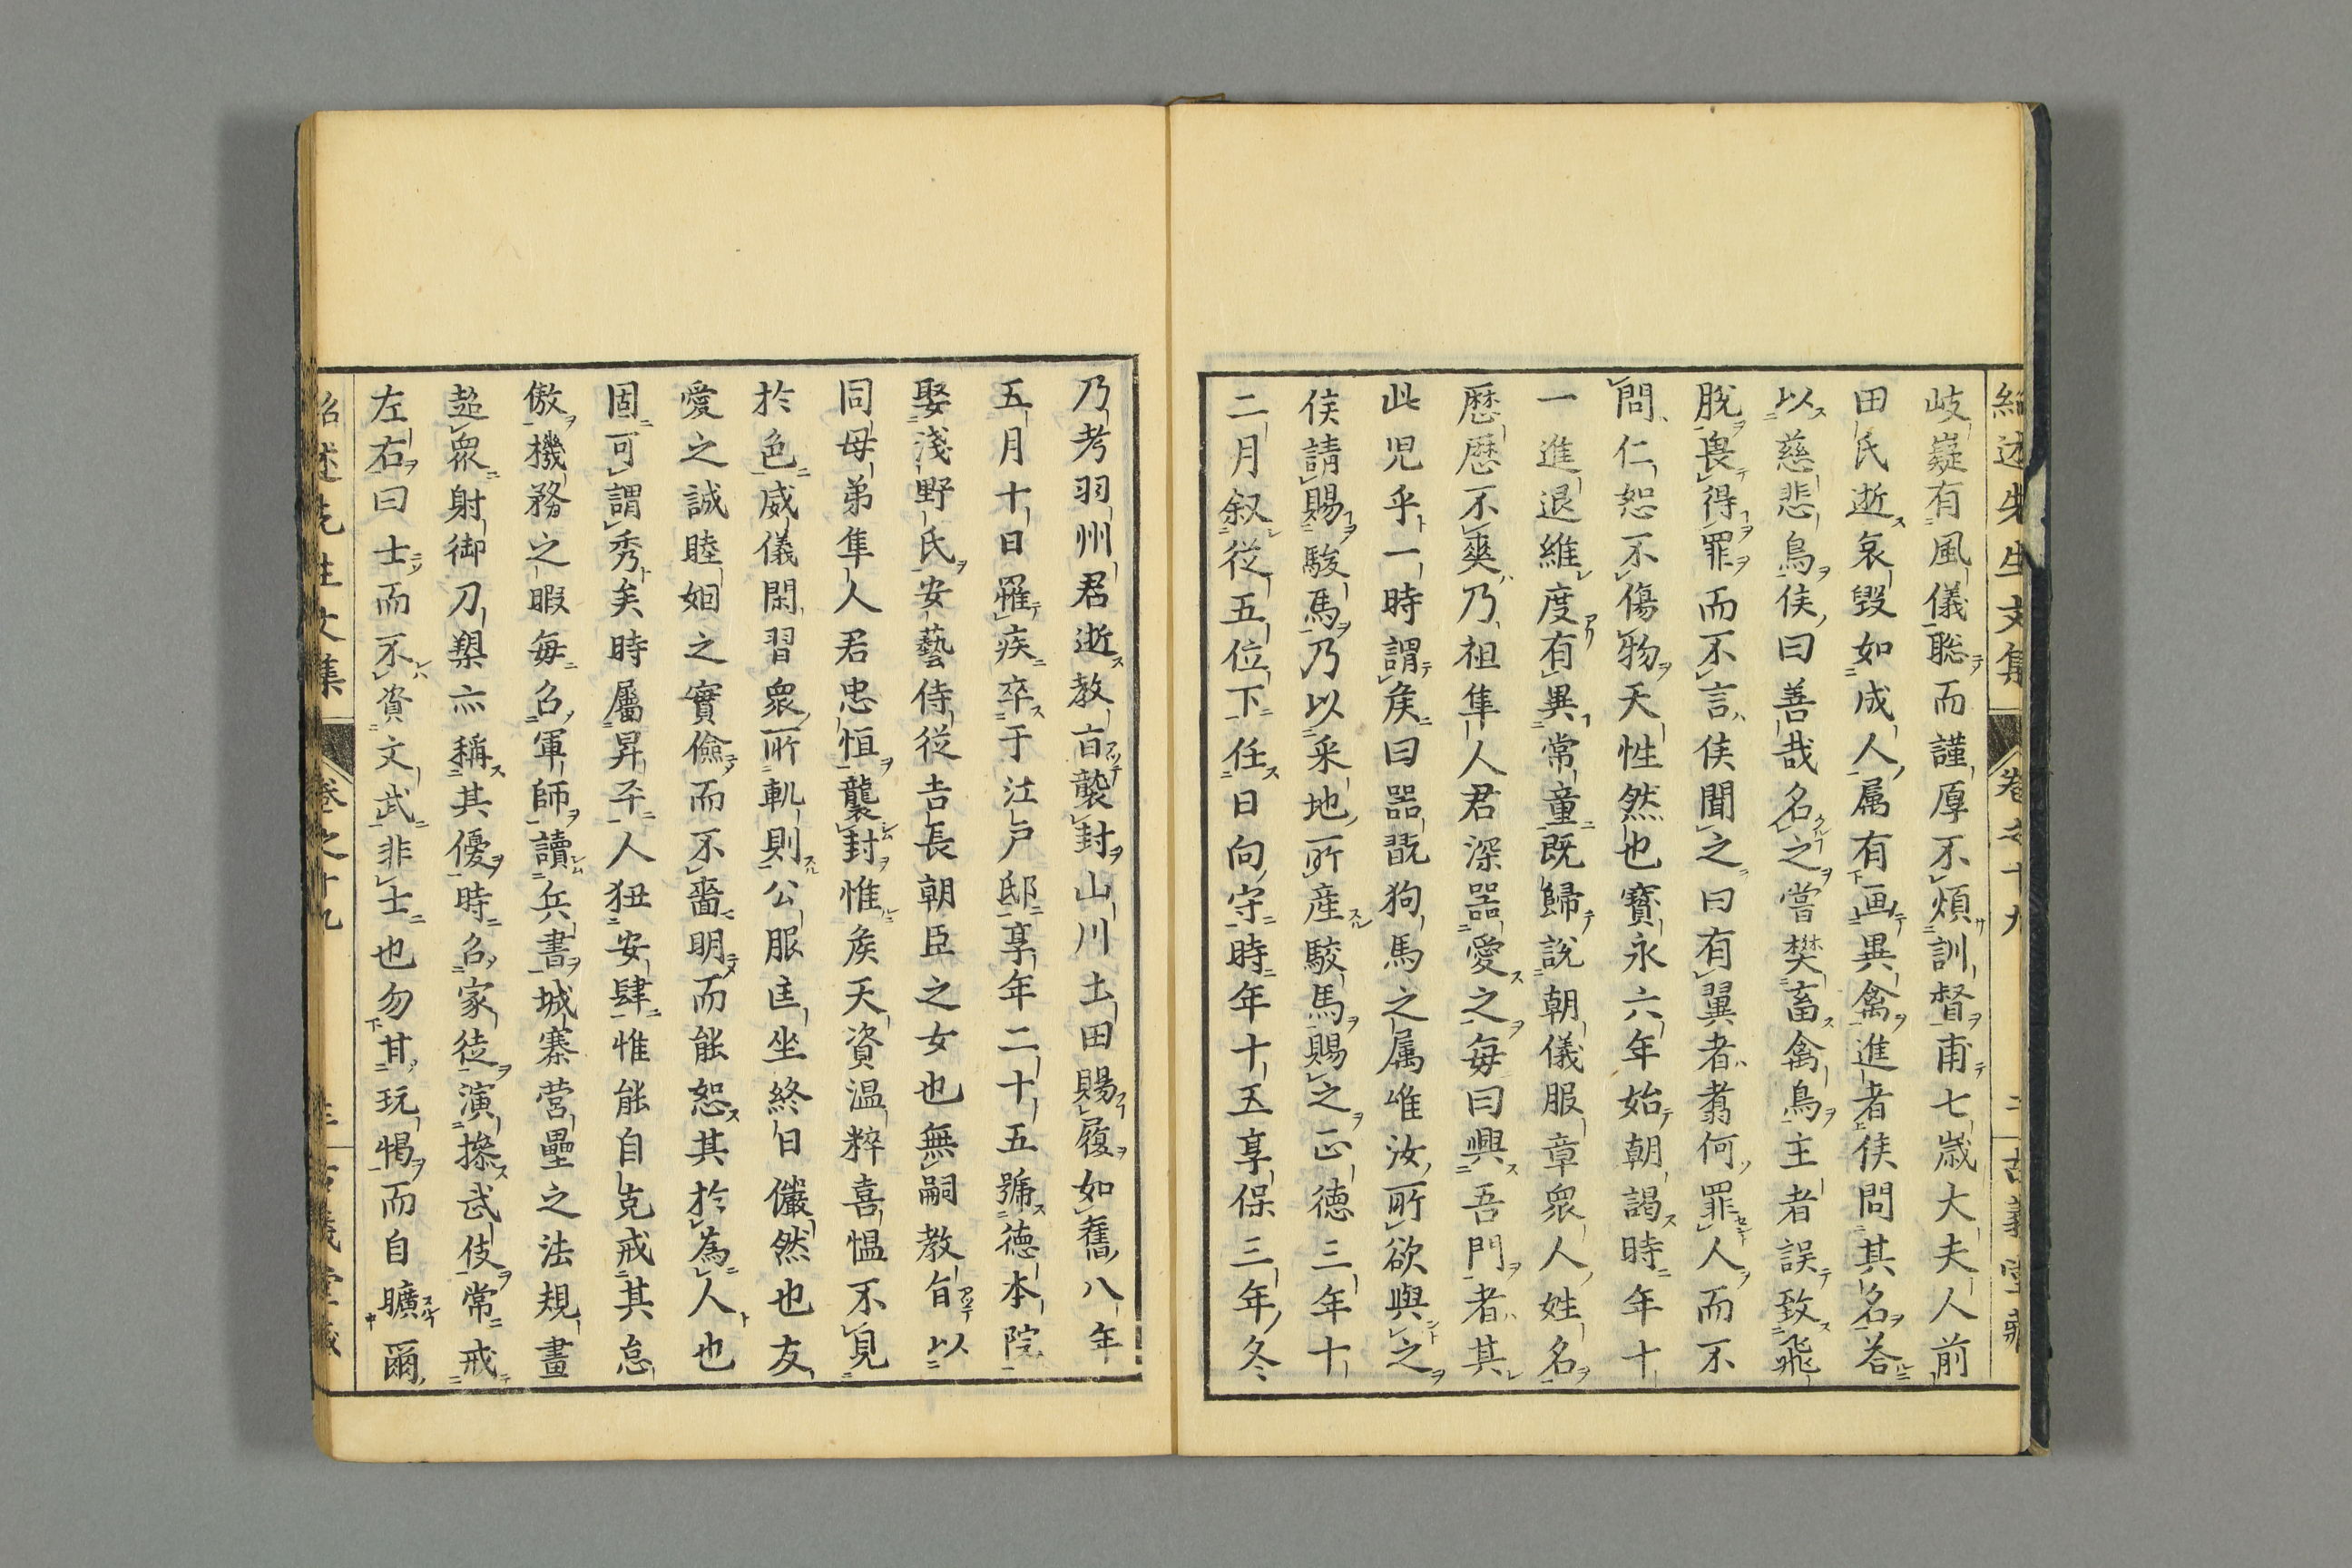 紹述先生文集 卷之十九 二 古義堂藏
岐嶷有風儀聡而謹厚不煩訓督甫七歳大夫人前
田氏逝哀毀如成人属有画異禽進者侯問其名荅
以慈悲鳥侯曰善哉名之嘗樊畜禽鳥主者誤致飛
脱畏得罪而不言侯聞之曰有翼者翥何罪人而不
問仁恕不傷物天性然也寳永六年始朝謁時年十
一進退維度有異常童既歸説朝儀服章衆人姓名
歴歴不爽乃祖隼人君深噐愛之毎曰興吾門者其
此児乎一時謂侯曰噐翫狗馬之属唯汝所欲與之
侯請賜駿馬乃以采地所産駿馬賜之正德三年十
二月叙從五位下任日向守時年十五享保三年冬
乃考羽州君逝教旨襲封山川土田賜履如舊八年
五月十日罹疾卒于江戸邸享年二十五號德本院
娶淺野氏安藝侍從吉長朝臣之女也無嗣教旨以
同母弟隼人君忠恒襲封惟侯天資温粹喜愠不見
於色威儀閑習衆所軌則公服匡坐終日儼然也友
愛之誠睦姻之實儉而不嗇明而能恕其於為人也
固可謂秀矣時屬昇平人狃安肆惟能自克戒其怠
傲機務之暇毎召軍師讀兵書城寨營壘之法規畫
超衆射御刀槊亦稱其優時召家徒演摻武伎常戒
左右曰士而不資文武非士也勿甘玩愒而自曠爾
紹述先生文集 卷之十九 古義堂藏